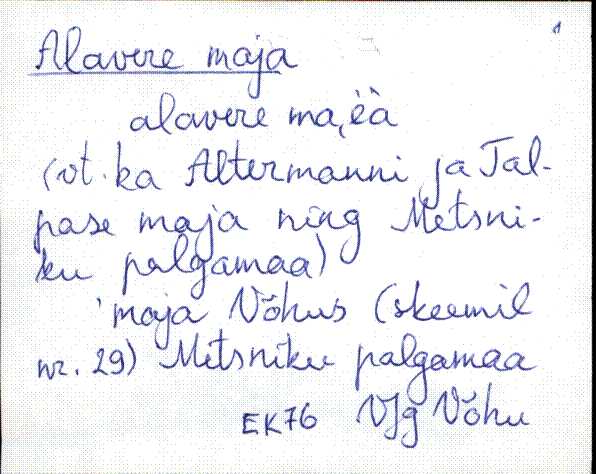 1
Alavere maja
alavere ma,ĕà
(vt. ka Altermanni ja Tal-
pase maja ning Metsni-
ku palgamaa)
'maja Võhus (skeemil
nr. 29) Metsniku palgamaa
EK76 VJg Võhu